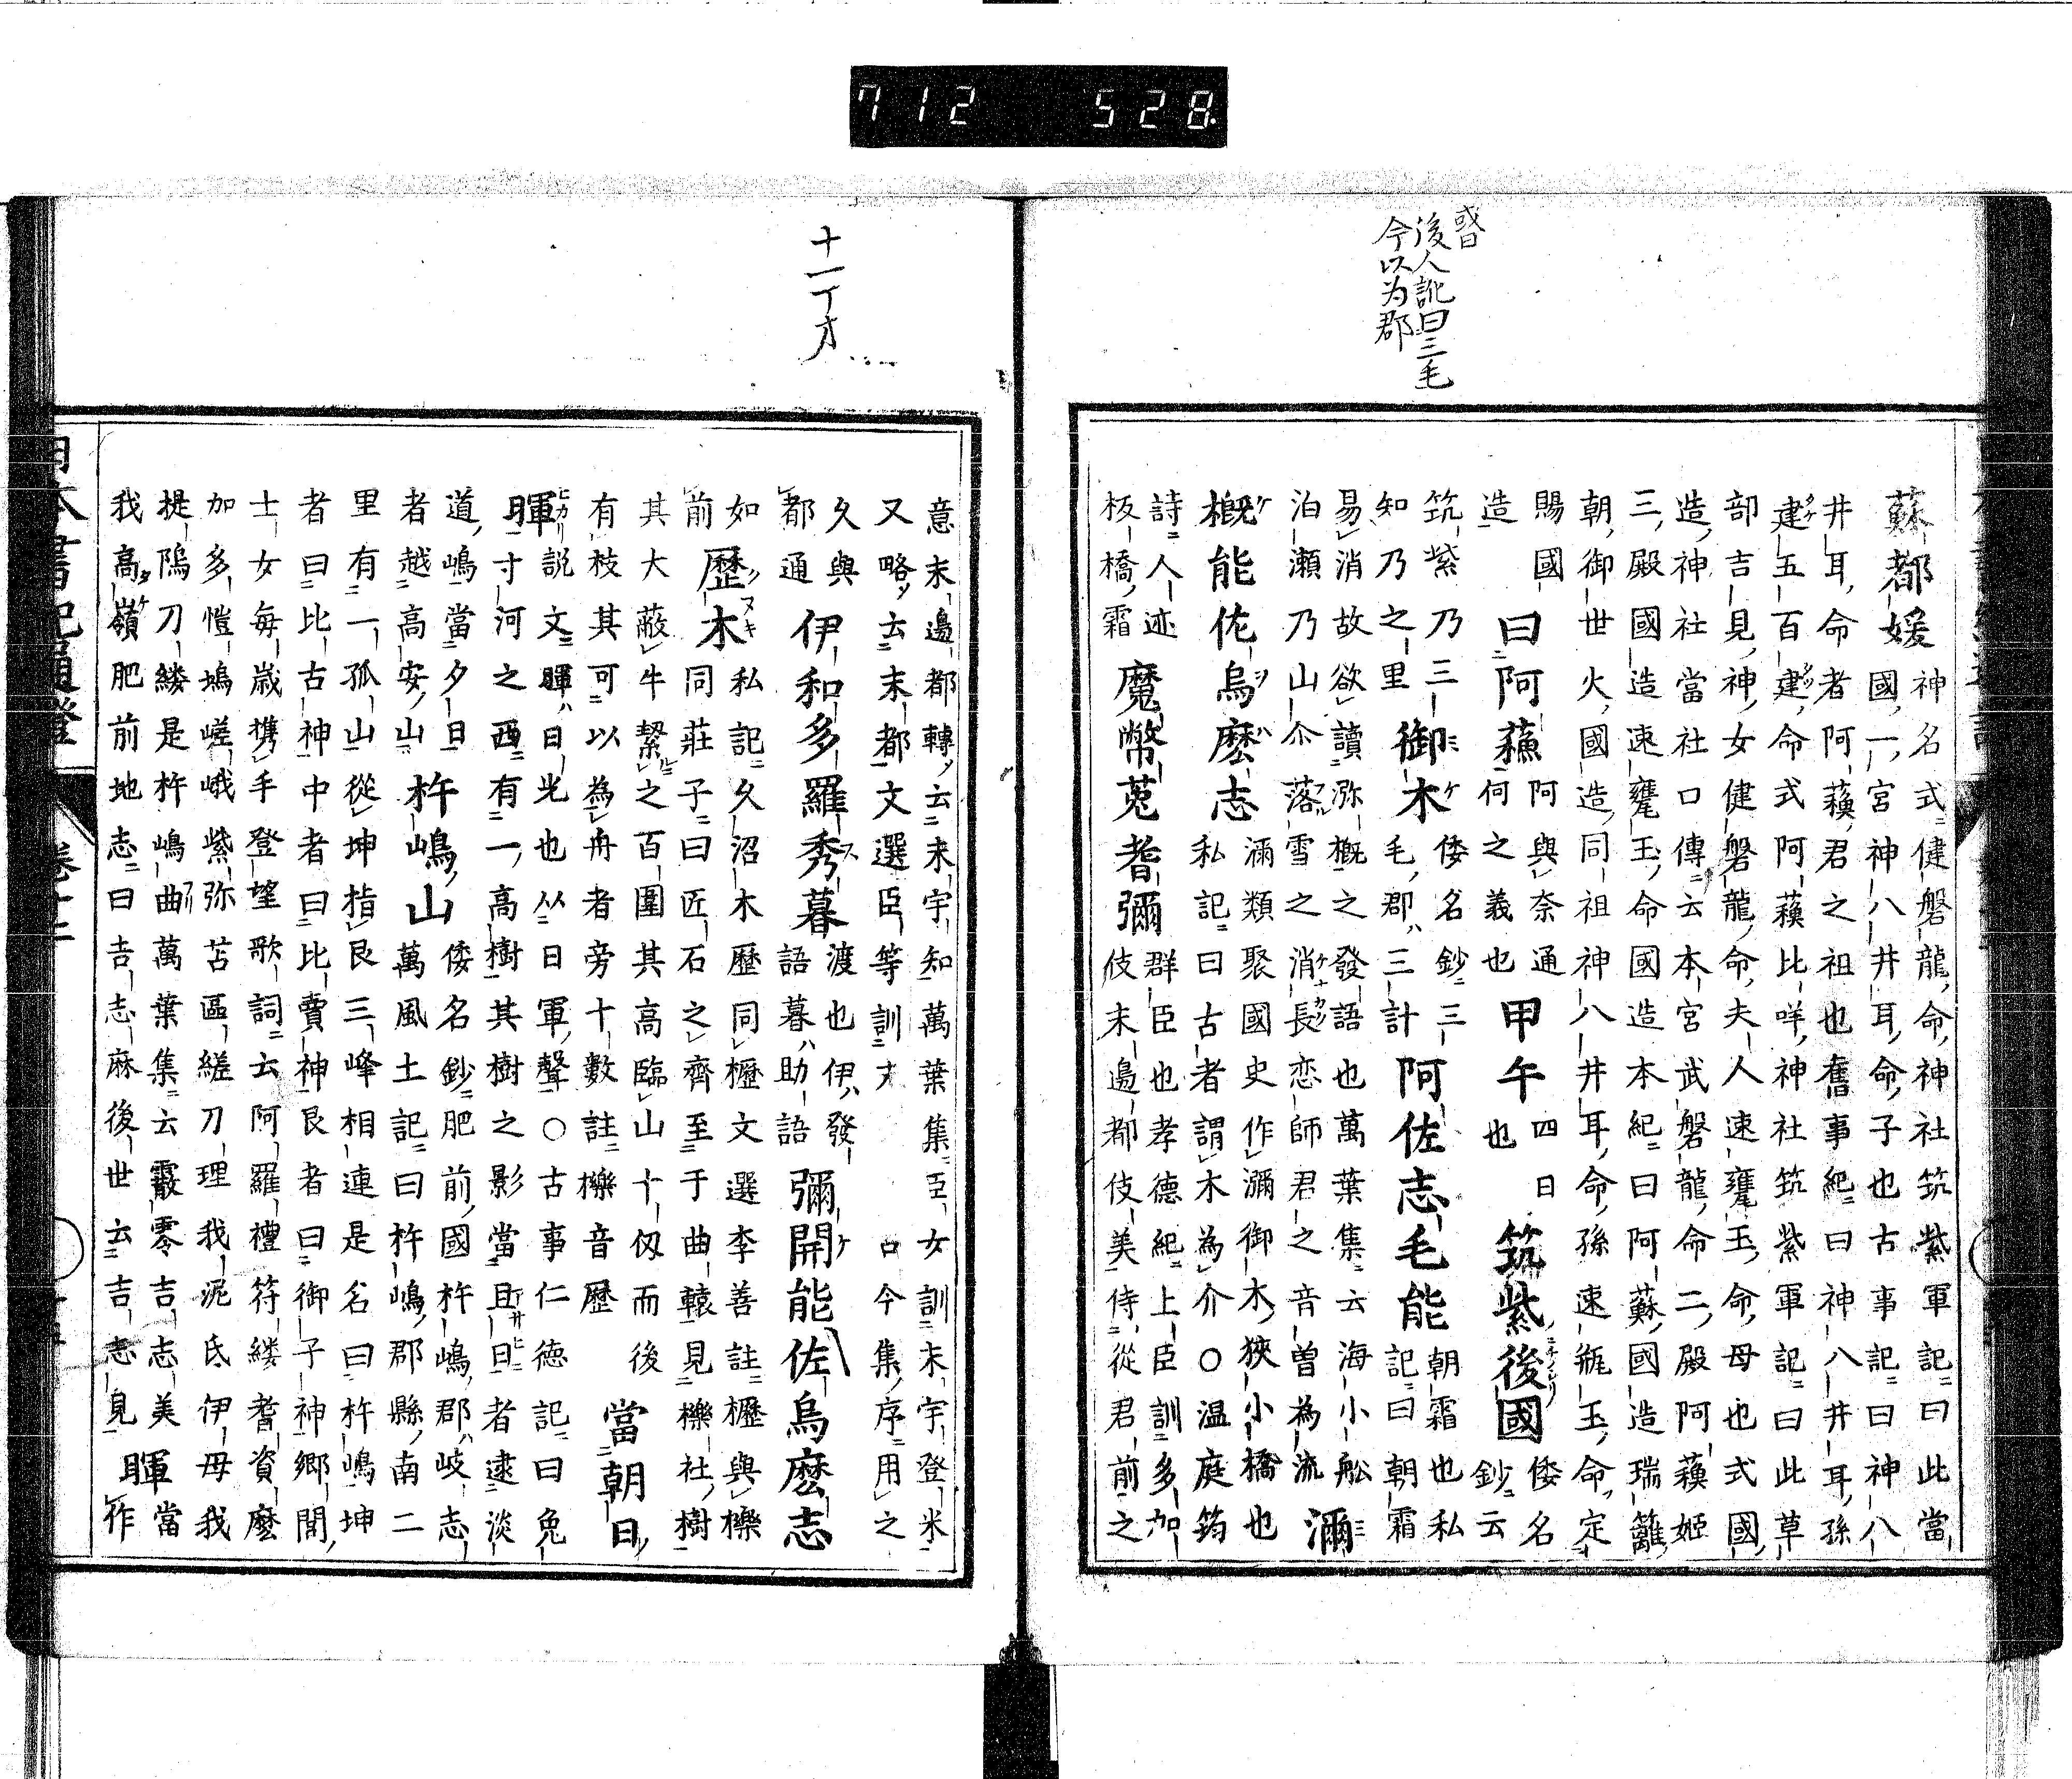 712 528
或曰
後人訛曰三毛
今以为郡
蘇都媛 神名式健磐龍命神社筑紫軍記曰此當
國一宮神八井耳命子也古事記曰神八
井耳命者阿蘓君之祖也舊事紀曰神八井耳孫
建五百建命式阿蘓比咩神社筑紫軍記曰此草
部吉見神女健磐龍命夫人速甕玉命母也式國
造神社當社口傳云本宮武磐龍命二殿阿蘓姬
三殿國造速甕玉命國造本紀曰阿蘇國造瑞籬
朝御世火國造同祖神八井耳命孫速瓶玉命定
賜國造 曰阿蘓 阿與奈通何之義也 甲午 四日也 筑紫後國 倭名鈔云
筑紫乃三知乃之里 御木 倭名鈔三毛郡三計 阿佐志毛能 朝霜也私記曰朝霜
易消故欲讀瀰概之發語也萬葉集云海小舩
泊瀬乃山尒落雪之消長恋師君之音曽為流 瀰
概能佐烏麼志 瀰類聚國史作瀰御木狹小橋也
私記曰古者謂木為介〇温庭筠
詩人迹板橋霜 魔幣菟耆彌 群臣也孝德紀上臣訓多加
伎末邉都伎美侍從君前之
意末邉都轉云末宇知萬葉集臣女訓末宇登米
又略云末都文選臣等訓 口今集序用之
久與都通 伊和多羅秀暮 渡也伊發語暮助語 彌開能佐烏麼志
如前 歷木 私記久沼木歷同櫪文選李善註櫪與櫟
同莊子曰匠石之齊至于曲轅見櫟社樹
其大蔽牛絜之百圍其高臨山十仭而後
有枝其可以為舟者旁十數註櫟音歷 當朝日
暉 說文暉日光也从日軍聲〇古事仁德記曰免
寸河之西有一高樹其樹之影當旦日者逮淡
道嶋當夕日者越高安山 杵嶋山 倭名鈔肥前國杵嶋郡岐志
萬風土記曰杵嶋郡縣南二
里有一孤山從坤指艮三峰相連是名曰杵嶋坤
者曰比古神中者曰比賣神艮者曰御子神郷閭
士女毎歳携手登望歌詞云阿羅禮符縷耆資麼
加多愷塢嵯峨紫弥苫區縒刀理我泥氐伊母我
提塢刀縷是杵嶋曲萬葉集云霰零吉志美
我高嶺肥前地志曰吉志麻後世云吉志見 暉 當作
十一丁オ
日本書紀通證 卷十二